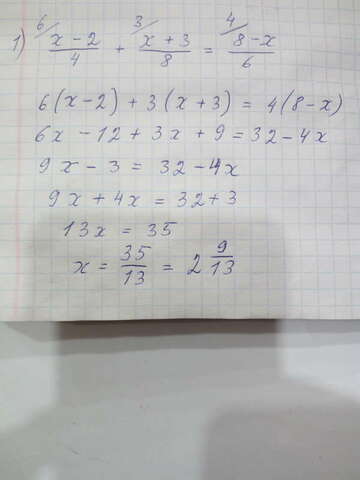 1) ⁶/(x-2)/4 + ³/(x+3)/8 = ⁴/(8-x)/6
6(x-2)+3(x+3)=4(8-x)
6x-12+3x+9=32-4x
9x-3=32-4x
9x+4x=32+3
13x=35
x=35/13=2 9/13